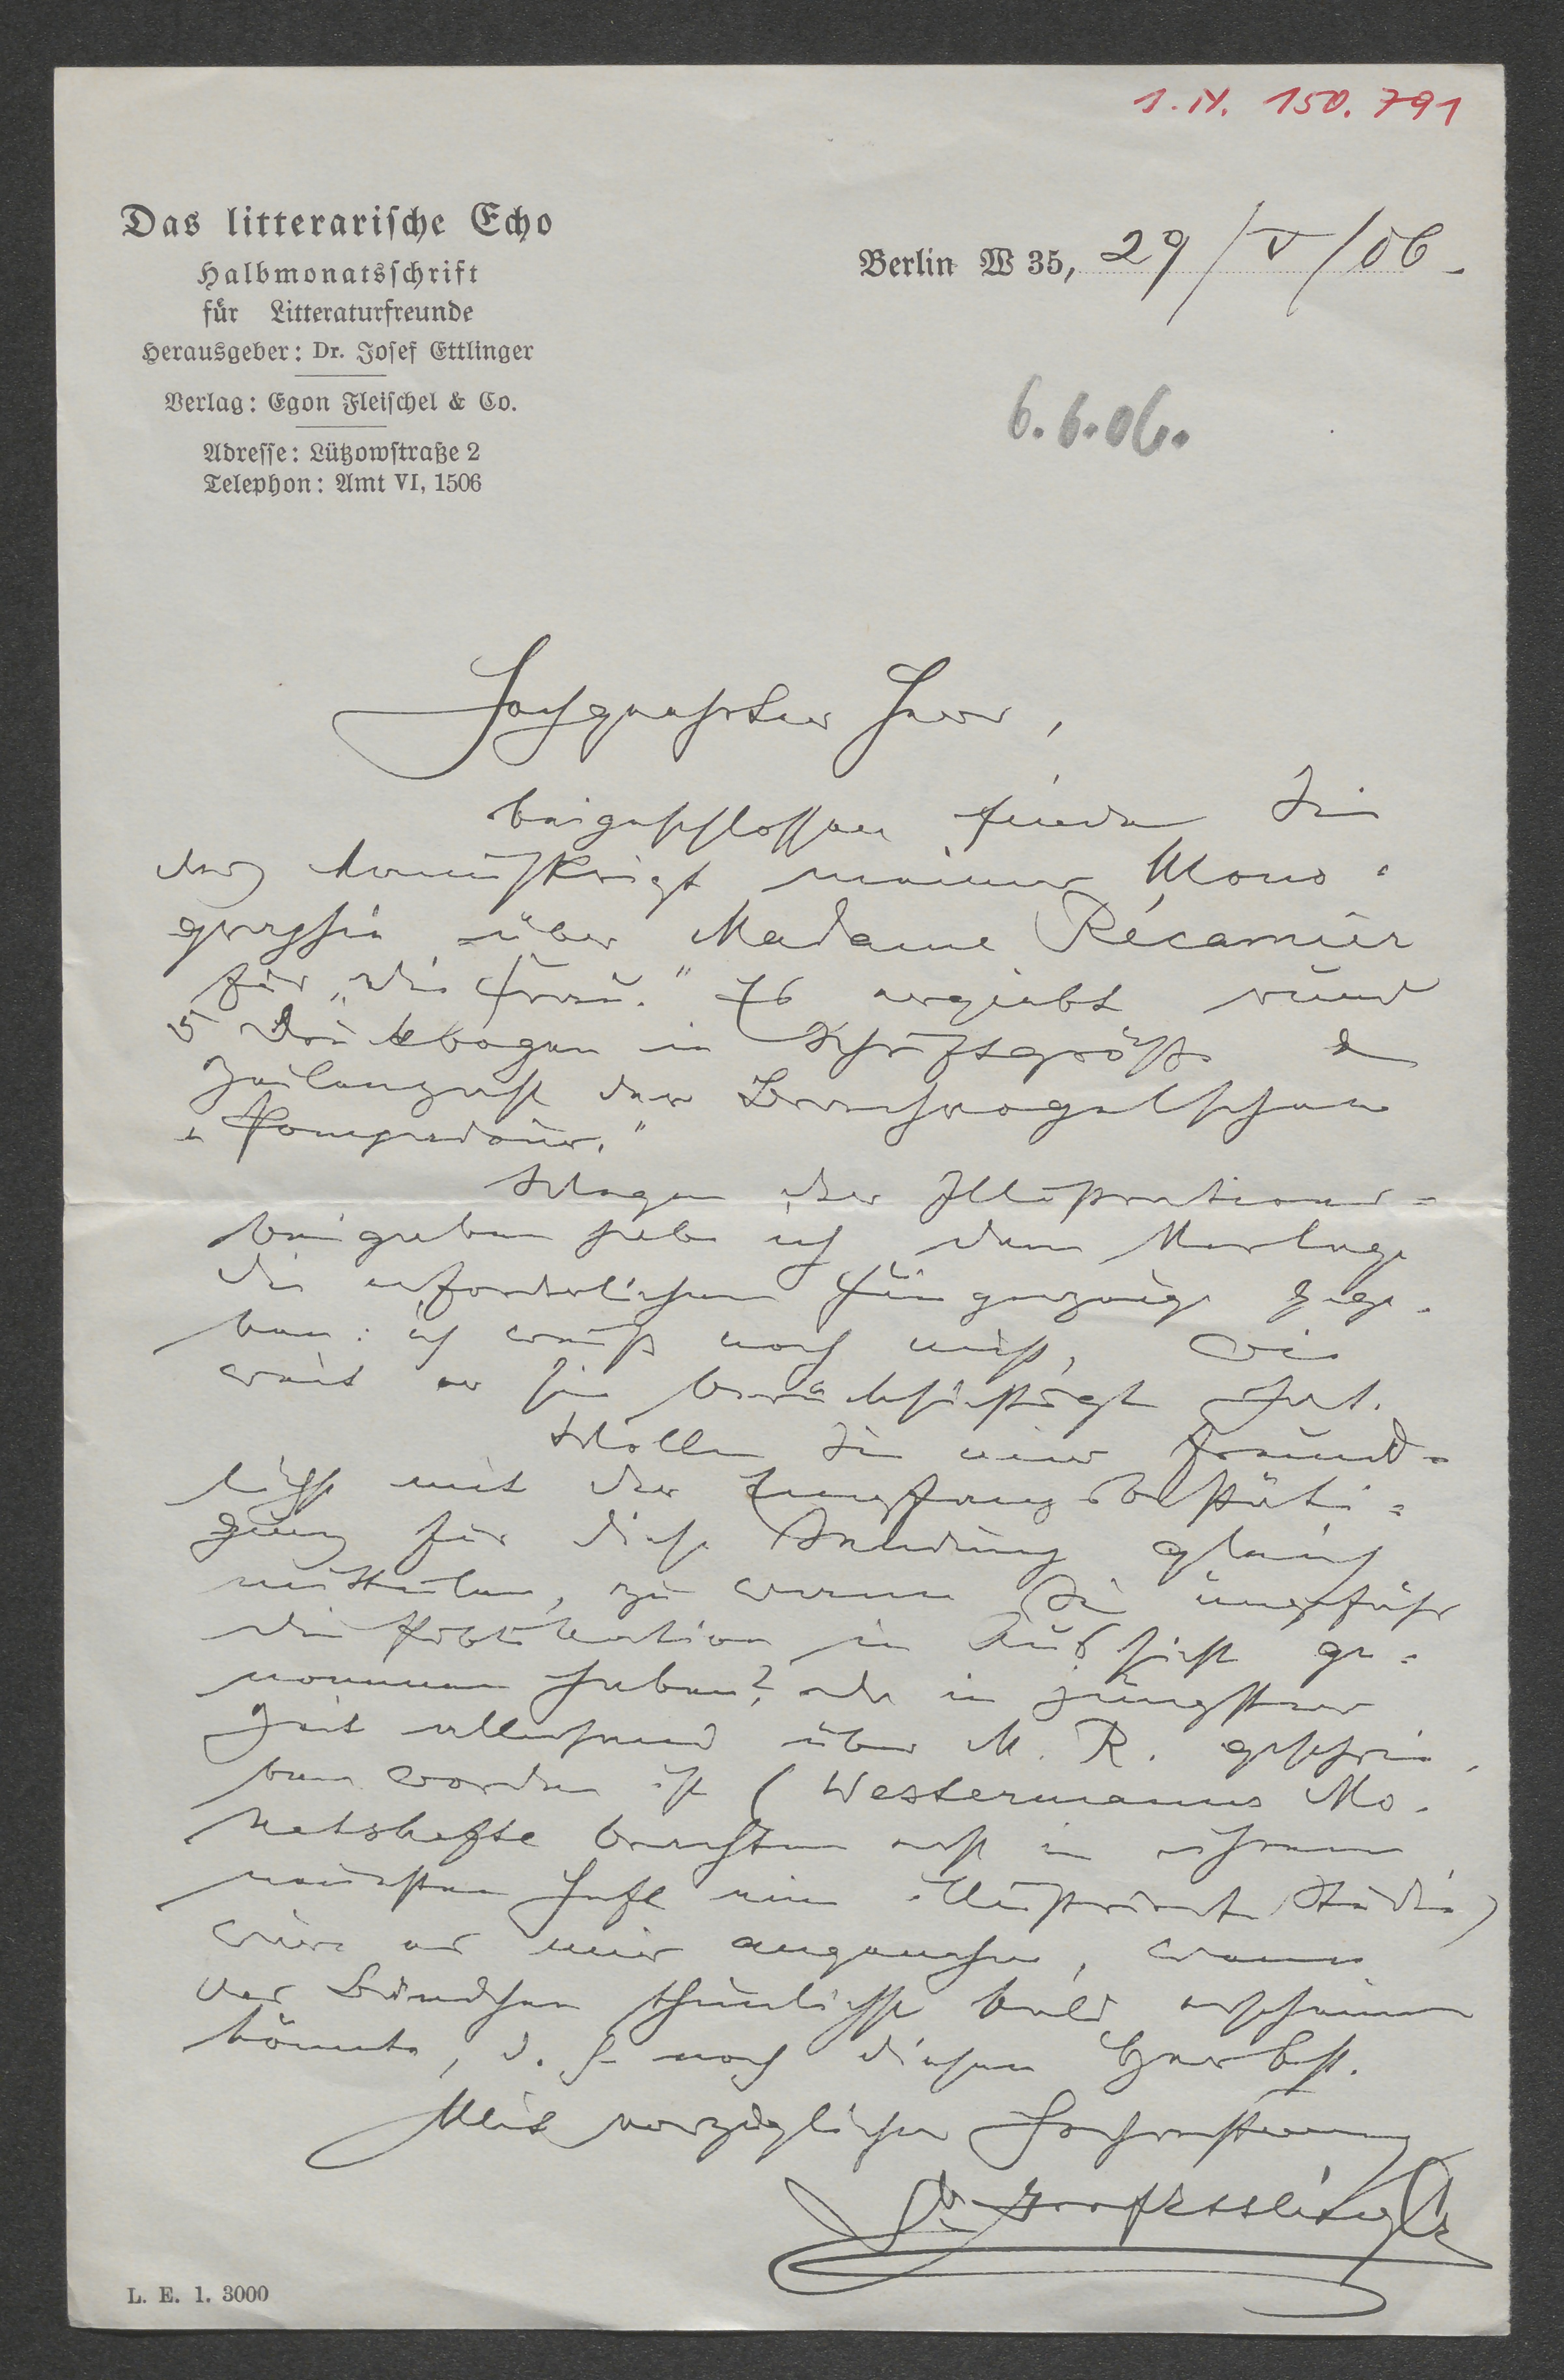 1. N. 150.791
Das litterarische Echo
Halbmonatsschrift
für Litteraturfreunde
Herausgeber: Dr. Josef Ettlinger
Verlag: Egon Fleischel & Co.
Adresse: Lützowstraße 2
Telephon: Amt VI, 1506
Berlin W 35, 29/V/06.
6.6.06.
Hochgeehrter Herr,
beigeschlossen finden Sie
das Manuskript meiner Mono-
graphie über Madame Récamier
für „die Frau." Es ergiebt rund
5 Druckbogen in Schriftgröße &
Zeilenzahl der Brachvogelschen
„Pompadour."
Wegen der Illustrations-
beigaben habe ich dem Verlage
die erforderlichen Fingerzeige gege-
ben: ich weiß noch nicht, wie
weit er sie berücksichtigt hat.
Wollen Sie mir freund-
lichst mit der Empfangsbestäti-
gung für diese Sendung gleich
mitteilen, zu wann Sie ungefähr
die Publikation in Aussicht ge-
nommen haben? Da in jüngster
Zeit allerhand über M. R. geschrie-
ben worden ist (Westermanns Mo-
natshefte brachten erst in ihrem
neuesten Heft eine illustrierte Studie)
wäre es mir angenehm, wenn
das Bändchen thunlichst bald erscheinen
könnte, d. h. noch diesen Herbst.
Mit vorzüglicher Hochachtung
Dr. Josef Ettlinger
L. E. 1. 3000